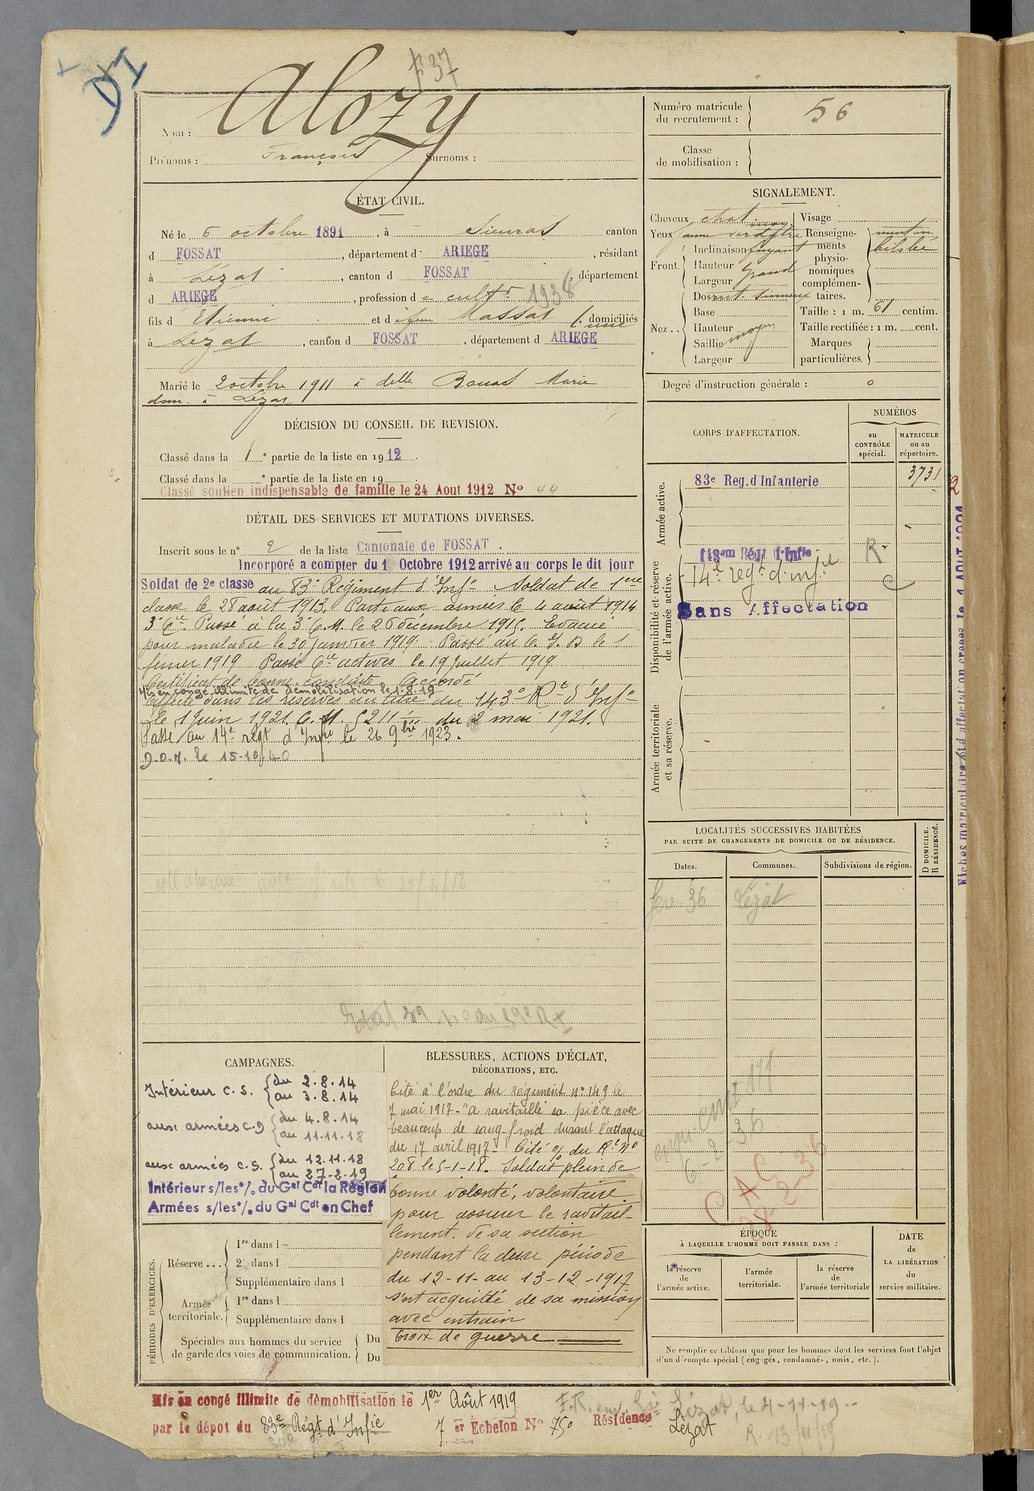 F 37
Alozy
Nom :
Prénoms : François Surnoms :
Numéro matricule du recrutement : 56
Classe de mobilisation :
ÉTAT CIVIL.
Né le 6 octobre 1891, à Sieuras canton
d FOSSAT, département d ARIEGE, résidant
à Lézat, canton d FOSSAT, département
d ARIEGE, profession d cultr 1938
fils d Etienne et d Massat domiciliés
à Lezat, canton d FOSSAT, département d ARIEGE
Marié le 2 octobre 1911 à delle Bouas Marie
dom. à Lézat
SIGNALEMENT.
Cheveux chat
Yeux jaune verdâtre
Front. Inclinaison fuyant
Hauteur grand
Largeur
Nez.. Dos rect. sinueux
Base
Hauteur moyen
Saillie
Largeur
Visage
Renseignements physionomiques complémentaires. menton
Taille : 1 m. 61 centim.
Taille rectifiée : 1 m. cent.
Marques particulières.
Degré d'instruction générale : 0
DÉCISION DU CONSEIL DE REVISION.
Classé dans la 1e partie de la liste en 1912.
Classé dans la e partie de la liste en 19
Classé soutien indispensable de famille le 24 Aout 1912 No 44
DÉTAIL DES SERVICES ET MUTATIONS DIVERSES.
Inscrit sous le n° 2 de la liste Cantonale de FOSSAT.
Incorporé a compter du 1 Octobre 1912 arrivé au corps le dit jour
Soldat de 2e classe au 83e Régiment d'Infie Soldat de 1ere
classe le 28 août 1913. Parti aux armées le 4 août 1914
3e Cie. Passé à la 3e C.M. le 26 décembre 1915. Evacué
pour maladie le 30 janvier 1919. Passé au C.I.D le 1
février 1919 Passé Cie actives le 19 juillet 1919
Certificat de bonne conduite Accordé
Mis en congé illimité de démobilisation le 1.8.19
Affecté dans les réserves du 143e Rt d'Infie
le 1 Juin 1921. C.M. 5211 du 2 mai 1921.
Passé au 14e régt d'Infie le 26 9bre 1923.
D.O.M. le 15-10/40
CORPS D'AFFECTATION.
NUMÉROS
au CONTRÔLE spécial.
MATRICULE ou au répertoire.
Armée active.
83e Reg. d Infanterie 3731
Disponibilité et réserve de l'armée active.
143em Régt d'Infie
14e regt d'infie
Sans Affectation
R.
C
Armée territoriale et sa réserve.
LOCALITÉS SUCCESSIVES HABITÉES
PAR SUITE DE CHANGEMENTS DE DOMICILE OU DE RÉSIDENCE.
Dates. Communes. Subdivisions de région. D DOMICILE. R RÉSIDENCE.
36 Lézat
CAMPAGNES.
Intérieur c. s. du 2.8.14
au 3.8.14
aux armées c. D du 4.8.14
au 11.11.18
aux armées c. S. du 12.11.18
au 27-2-19
Intérieurs s/les°/. du Gal Cdt la Région
Armées s/les°/. du Gal Cdt en Chef
BLESSURES, ACTIONS D'ÉCLAT,
DÉCORATIONS, ETC.
Cité à l'ordre du Régiment n° 149 le
7 mai 1917 - "a ravitaillé sa pièce avec
beaucoup de sang-froid durant l'attaque
du 17 avril 1917 - Cité o/. du Rt No
208 le 5-1-18. Soldat plein de
bonne volonté, volontaire
pour assurer le ravitail-
lement de sa section
pendant la dure période
du 12-11- au 13-12-1917
s'est acquitté de sa mission
avec entrain
Croix de guerre
PÉRIODES D'EXERCICES.
Réserve... 1re dans l
2e dans l
Supplémentaire dans l
Armée territoriale. 1re dans l
Supplémentaire dans l
Spéciales aux hommes du service de garde des voies de communication. Du
Du
CAC
ÉPOQUE
À LAQUELLE L'HOMME DOIT PASSER DANS :
la réserve de l'armée active.
l'armée territoriale.
la réserve de l'armée territoriale
DATE de LA LIBÉRATION du service militaire.
Ne remplir ce tableau que pour les hommes dont les services font l'objet
d'un décompte spécial (engagés, condamnés, omis, etc.).
Mis en congé illimité de démobilisation le 1er Août 1919
par le dépot du 83e Régt d'Infie 7 er Echelon No 750 Résidence Lézat
Lézat, le 4-11-19
R. 13/11/19